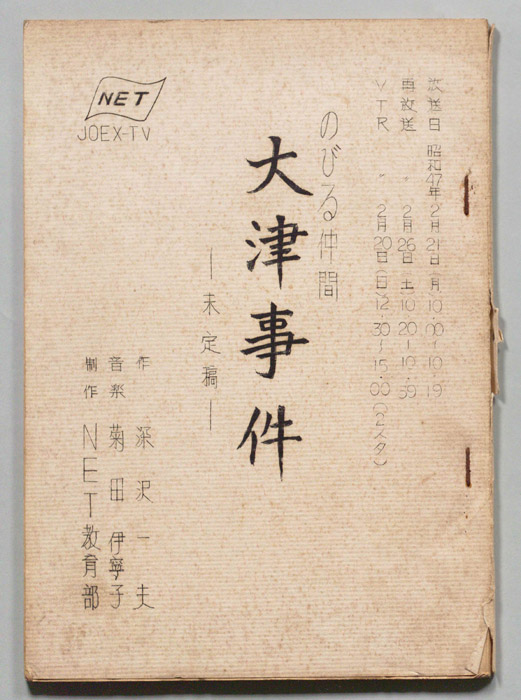 放送日 昭和47年2月21日(月)10・00〜10・19
再放送 〃 2月26日土10・20〜10・39
VTR 〃 2月20日(日)12・30〜15・00(2スタ)
のびる仲間
大津事件
―未定稿―
作 深沢一夫
音楽 菊田伊寧子
制作 NET教育部
NET
JOEX-TV